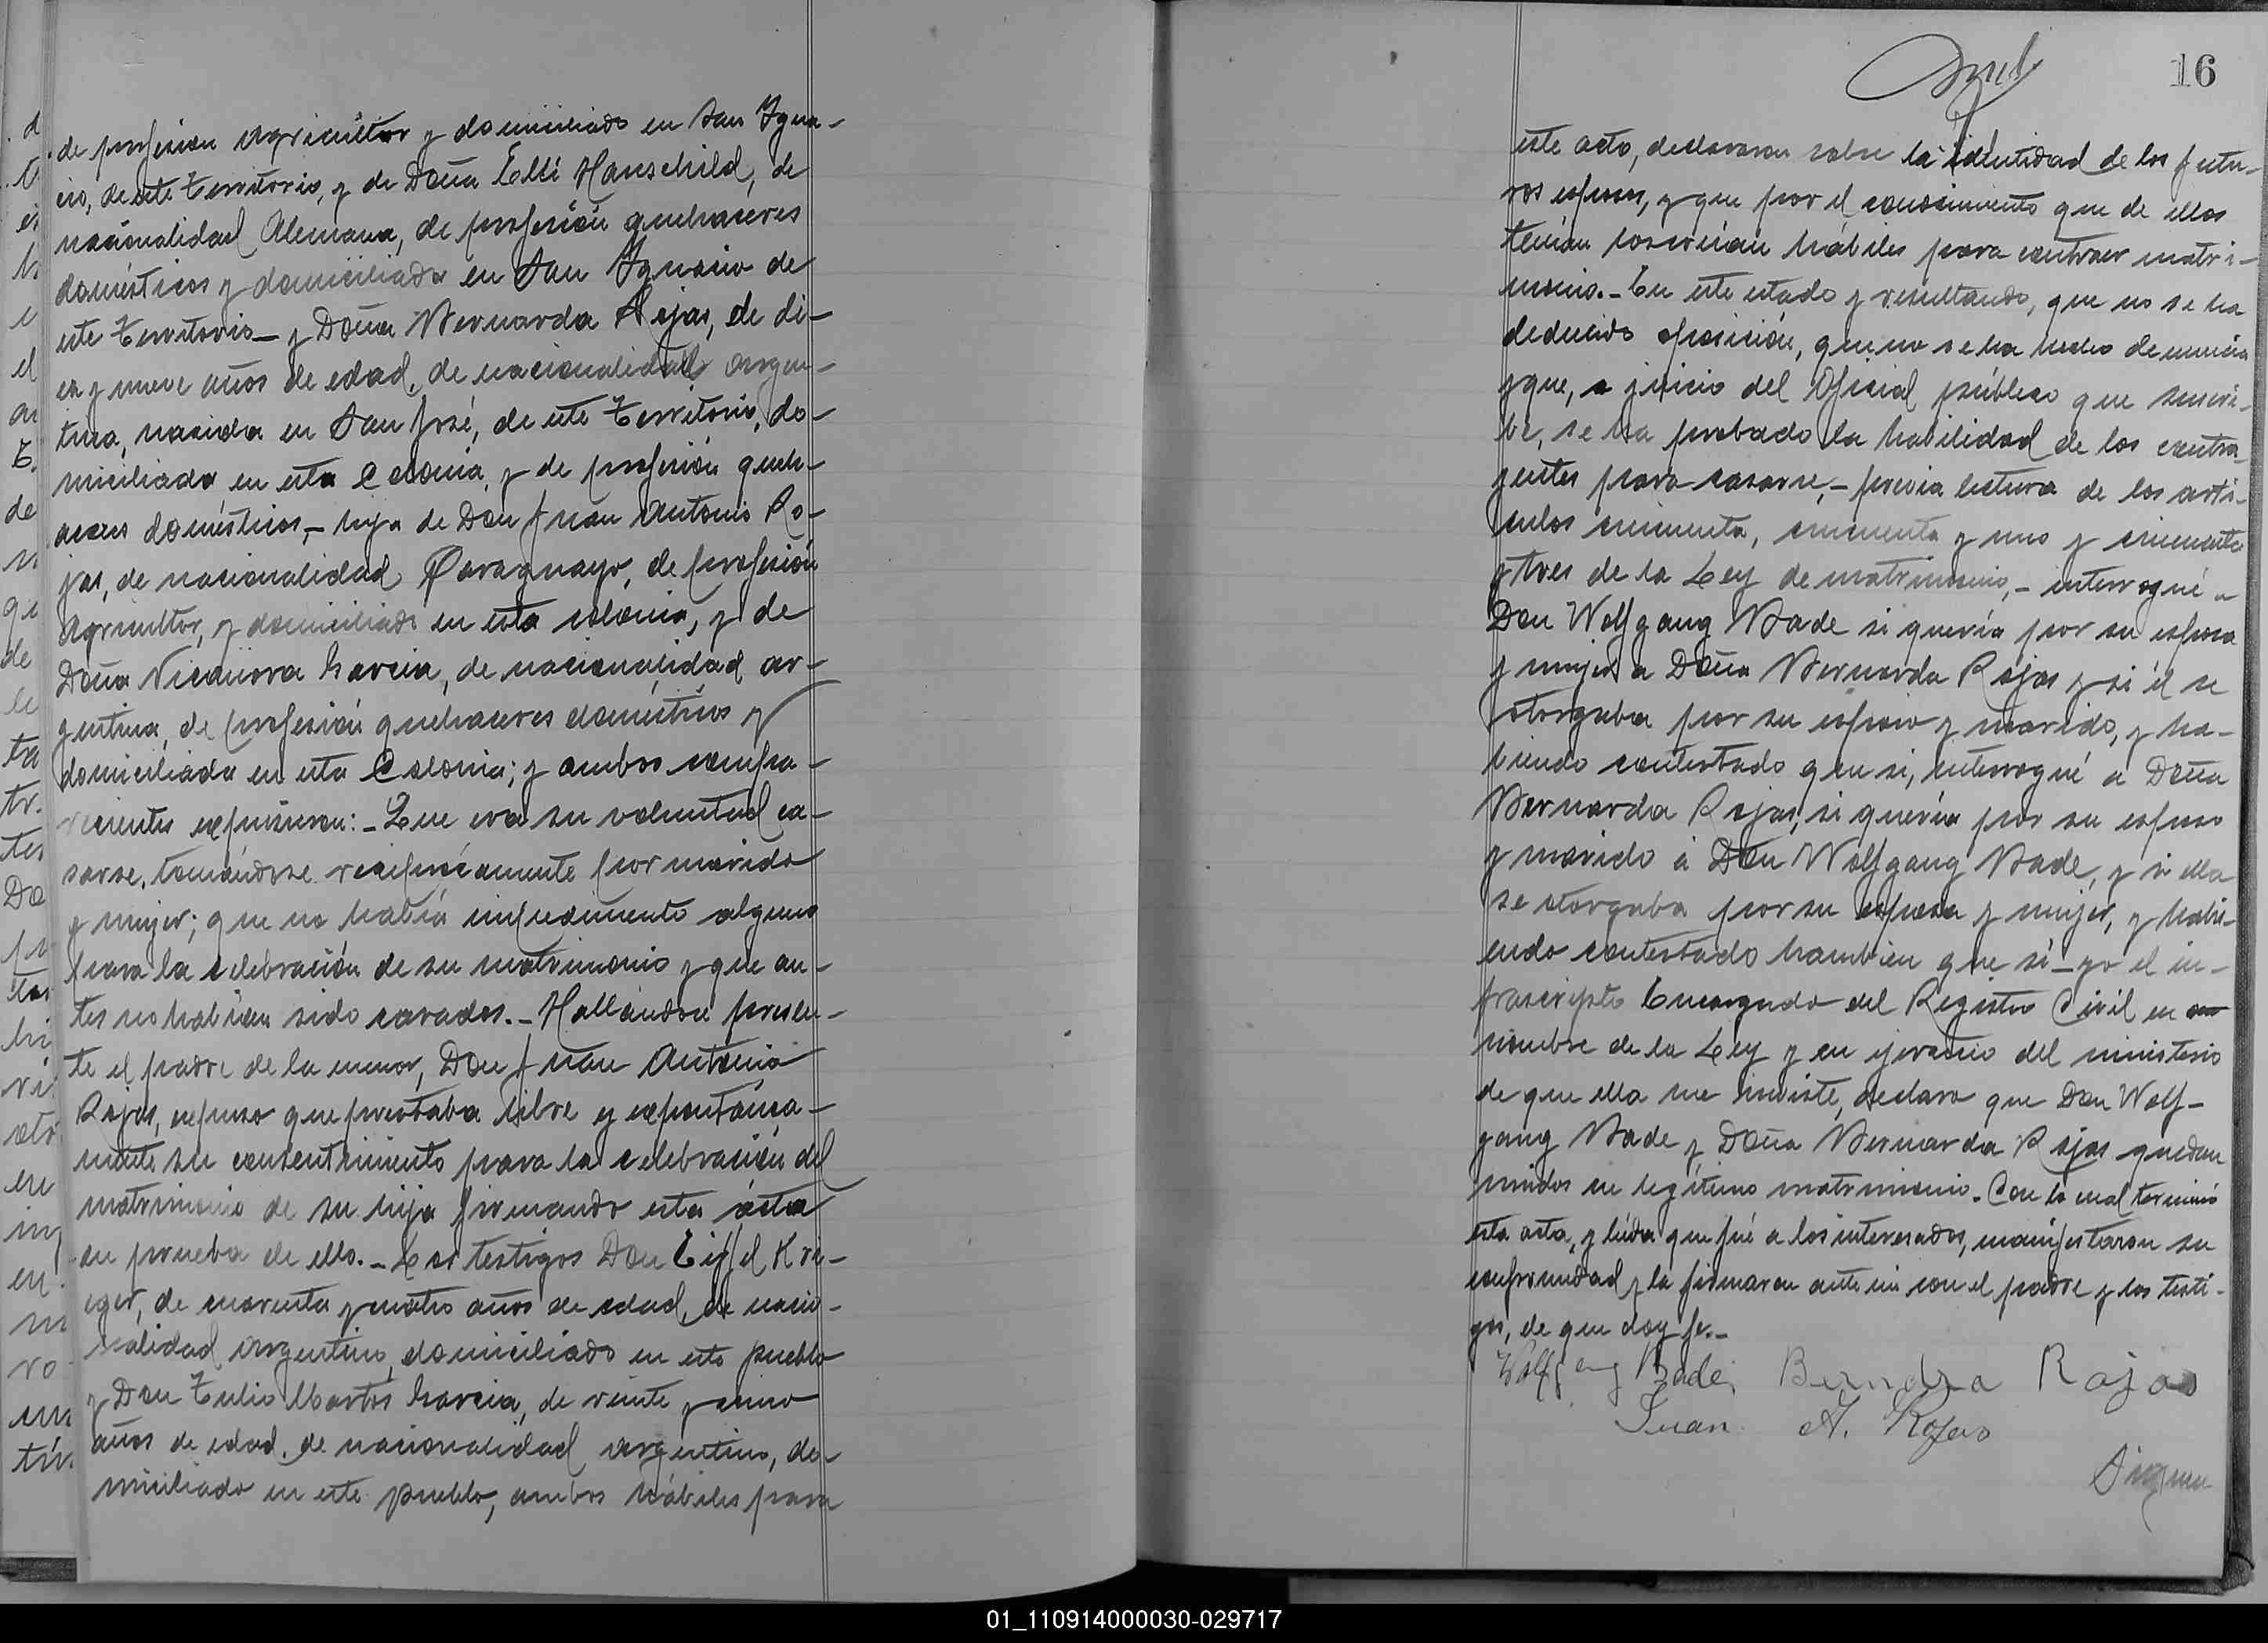 de profesión agricultor y domiciliado en San Igna-
cio, de este Territorio, y de Doña Elli Hanschild, de
nacionalidad Alemana, de profesión quehaceres
domésticos y domiciliada en San Ignacio de
este Territorio — y Doña Bernarda Rojas, de di-
ez y nueve años de edad, de nacionalidad argen-
tina, nacida en San José, de este Territorio, do-
miciliada en esta Colonia, y de profesión queh-
aceres domésticos, — hija de Don Juan Antonio Ro-
jas, de nacionalidad Paraguayo, de profesión
Agricultor, y domiciliado en esta colonia, y de
Doña Nicanora Garcia, de nacionalidad ar-
gentina, de profesión quehaceres domésticos y
domiciliada en esta Colonia; y ambos compa-
recientes expusieron: - Que era su voluntad ca-
sarse, tomándose recíprocamente por marido
y mujer; que no había impedimento alguno
para la celebración de su matrimonio y que an-
tes no habían sido casados. - Hallándose presen-
te el padre de la menor, Don Juan Antonio
Rojas, expuso que prestaba libre y expontánea-
mente su consentimiento para la celebración del
matrimonio de su hija firmando esta acta
en prueba de ello. - Los testigos Don Eiffel Kri-
eger, de cuarenta y cuatro años de edad, de nacio-
nalidad argentino, domiciliado en este pueblo
y Don Tulio Martos Garcia, de veinte y cinco
años de edad, de nacionalidad argentino, do-
miciliado en este pueblo, ambos hábiles para
16
este acto, declararon sobre la identidad de los futu-
ros esposos, y que por el conocimiento que de ellos
tenían los creían hábiles para contraer matri-
monio. - En este estado y resultando, que no se ha
deducido oposición, que no se ha hecho denuncia
y que, a juicio del Oficial público que suscri-
be, se ha probado la habilidad de los contra-
yentes para casarse, - previa lectura de los artí-
culos cincuenta, cincuenta y uno y cincuenta
y tres de la Ley de matrimonio, - interrogué a
Don Wolfgang Bade si quería por su esposa
y mujer a Doña Bernarda Rojas y si él se
otorgaba por su esposo y marido, y ha-
biendo contestado que si, interrogué a Doña
Bernarda Rojas, si quería por su esposo
y marido á Don Wolfgang Bade, y si ella
se otorgaba por su esposa y mujer, y habi-
endo contestado también que sí — yo el in-
frascripto Encargado del Registro Civil en
nombre de la Ley y en ejercicio del ministerio
de que ella me inviste, declaro que Don Wolf-
gang Bade y Doña Bernarda Rojas quedan
unidos en legítimo matrimonio. Con lo cual terminó
esta acta, y leída que fué a los interesados, manifestaron su
conformidad y la firmaron ante mi con el padre y los testi-
gos, de que doy fe. -
Wolfgang Bade Bernarda Rojas
Juan A. Rojas
01_110914000030-029717